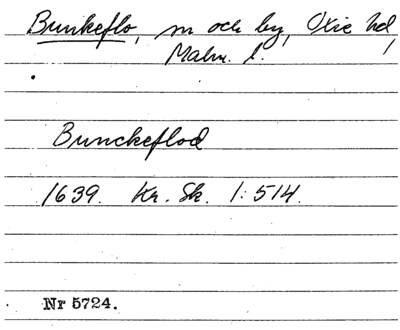 Bunkeflo, sn och by, Oxie hd,
Malm. l.
Bunckeflod
1639. Kr. Sk. 1:514.
Nr 5724.